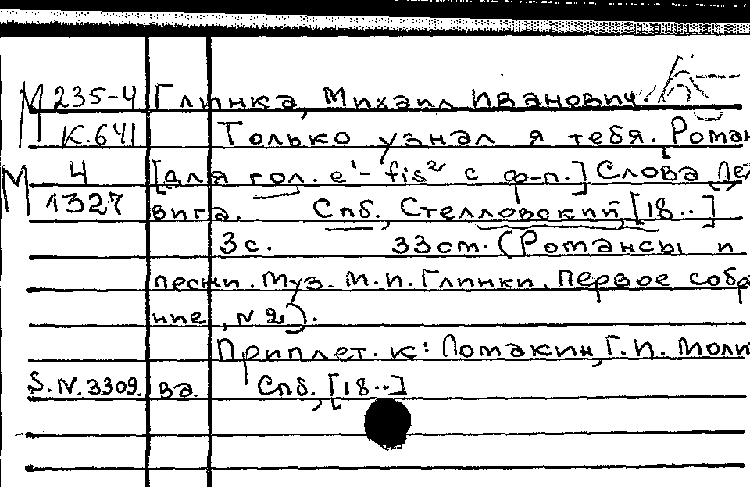 М 235-4 Глинка, Михаил Иванович.
К.641 Только узнал я тебя. Роман
М 4 [для гол. e¹- fis² с ф-п.] Слова Дел
1327 вига. Спб., Стелловский, [18..]
3с. 33см. (Романсы и
песни. Муз. М.И. Глинки. Первое собра
ние, N 2).
Приплет. к: Ломакин, Г.И. Моли
S.N.3309. ва. Спб., [18..]